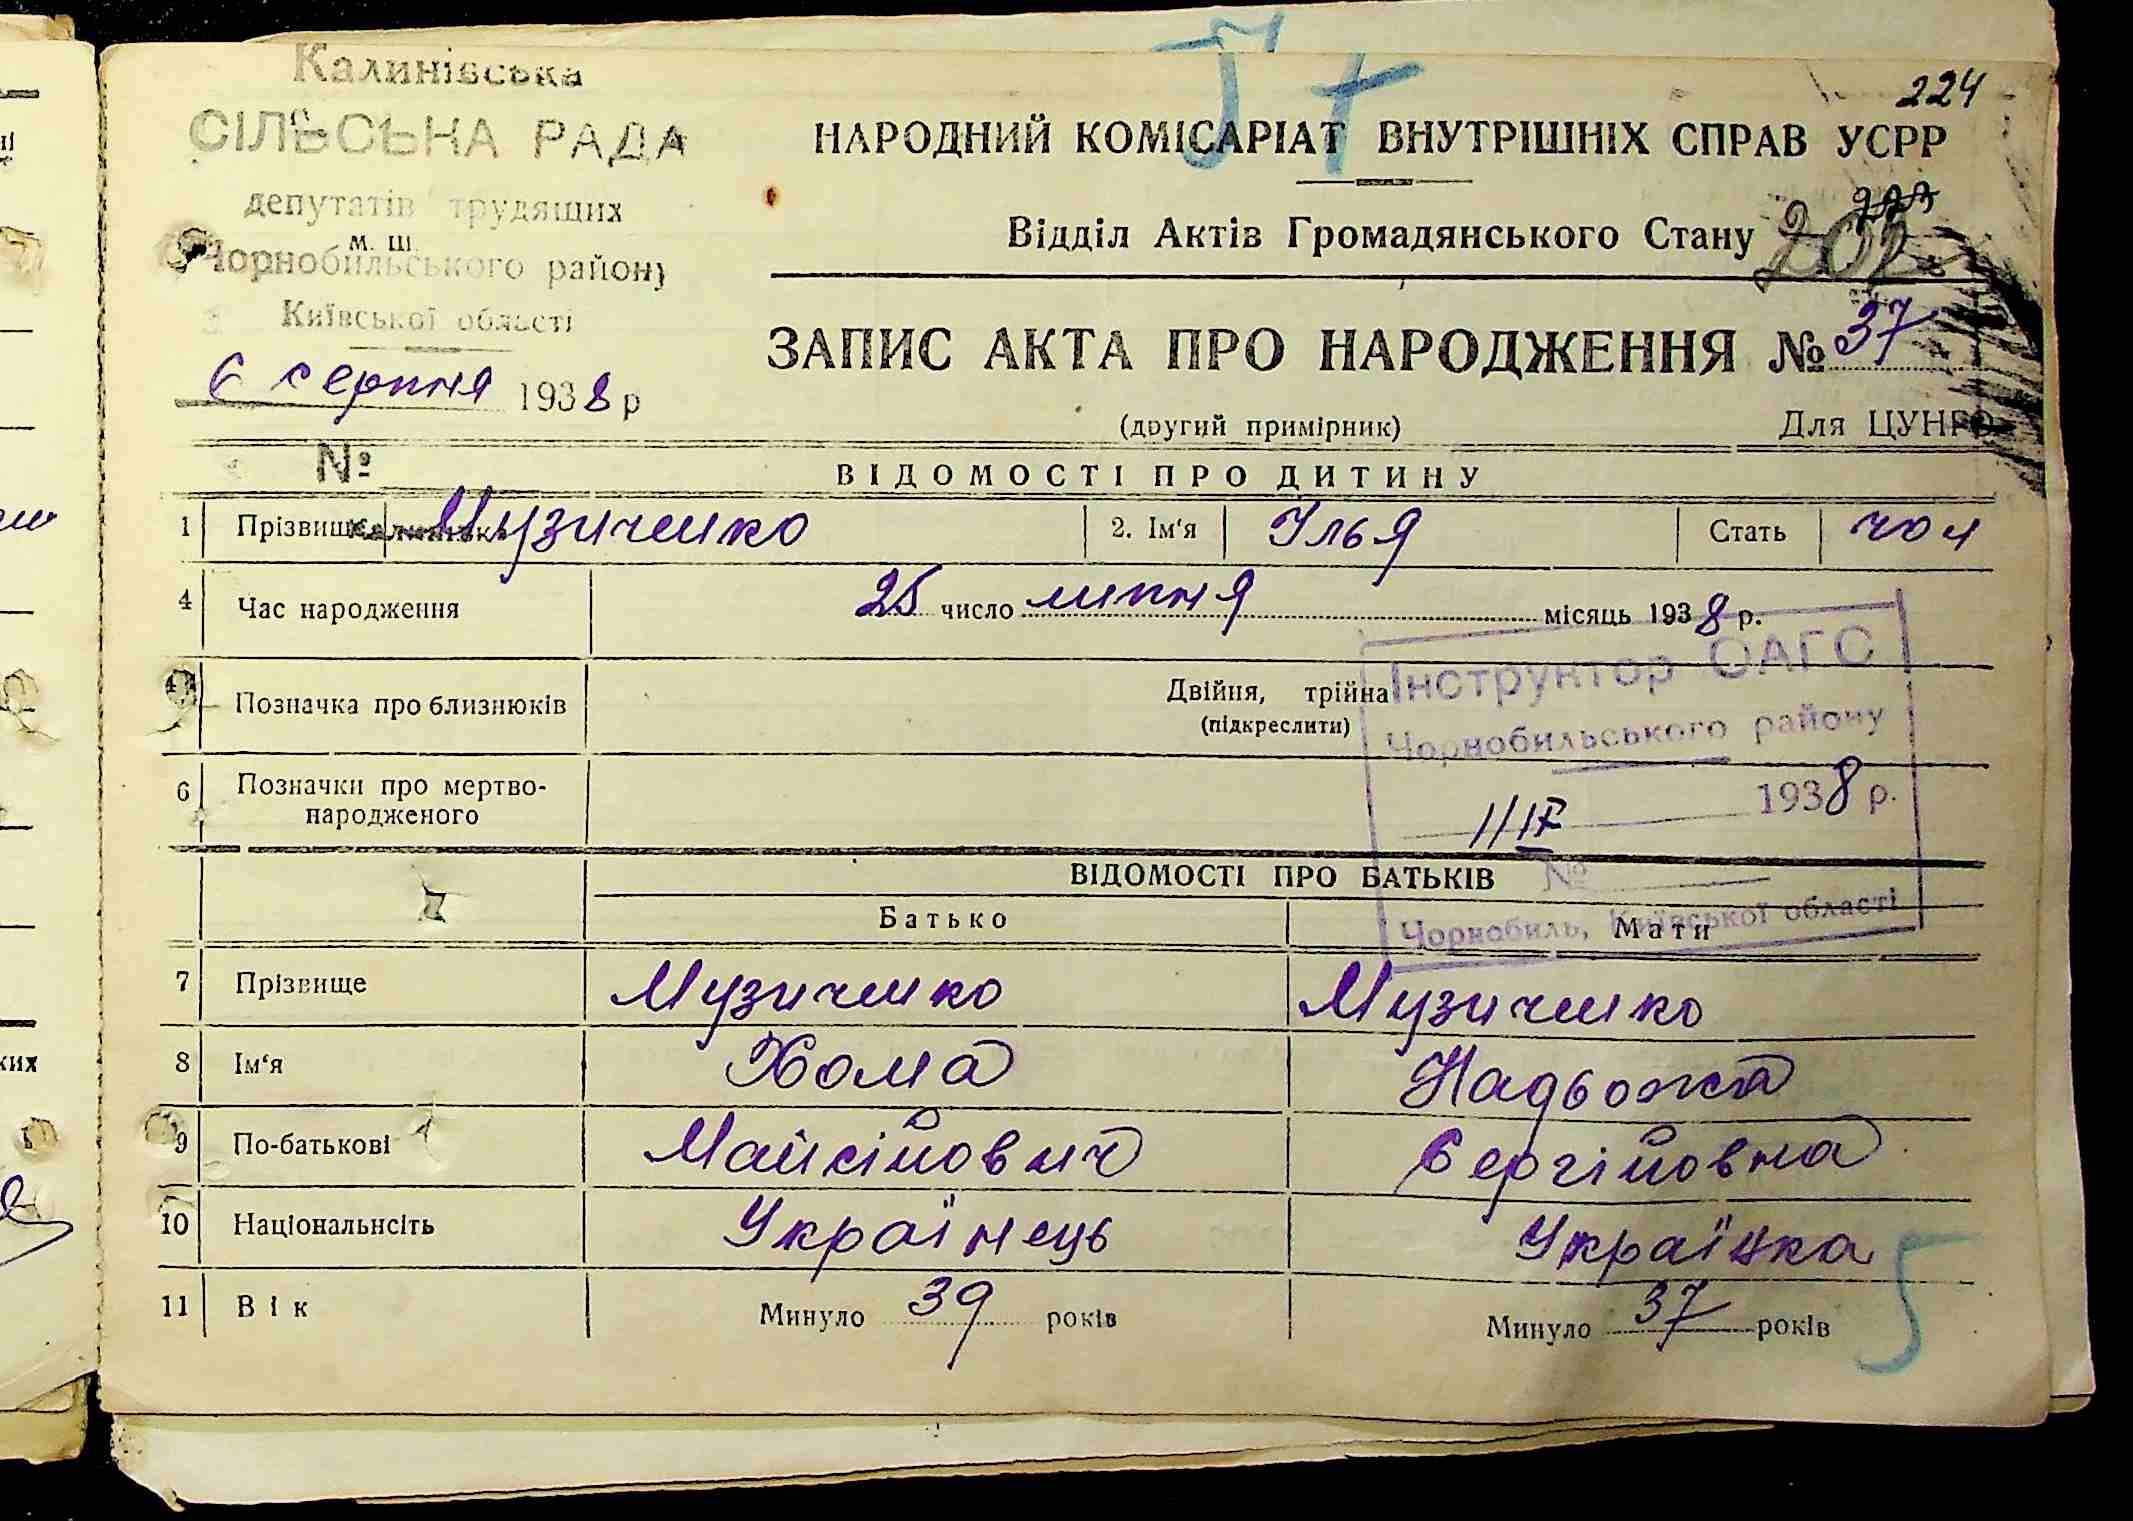 Калинівська
СІЛЬСЬКА РАДА
депутатів трудящих
м. ш.
Чорнобильського району
Київської області
6 серпня 1938 р
№
Калинівка
57
224
НАРОДНИЙ КОМІСАРІАТ ВНУТРІШНІХ СПРАВ УСРР
Відділ Актів Громадянського Стану
202
ЗАПИС АКТА ПРО НАРОДЖЕННЯ № 37
(другий примірник)
Для ЦУНГО
ВІДОМОСТІ ПРО ДИТИНУ
1 Прізвище Музиченко 2. Ім'я Ілья Стать чол
4 Час народження 25 число липня місяць 1938 р.
Позначка про близнюків Двійня, трійна
(підкреслити)
6 Позначки про мертво-
народженого
Інструктор ОАГС
Чорнобильського району
11/IX 1938 р.
№
Чорнобиль, Київської області
ВІДОМОСТІ ПРО БАТЬКІВ
Батько Мати
7 Прізвище Музиченко Музиченко
8 Ім'я Хома Надьожа
9 По-батькові Майсійович Сергійовна
10 Національнсіть Українець Українка
11 Вік Минуло 39 років Минуло 37 років
5
ких